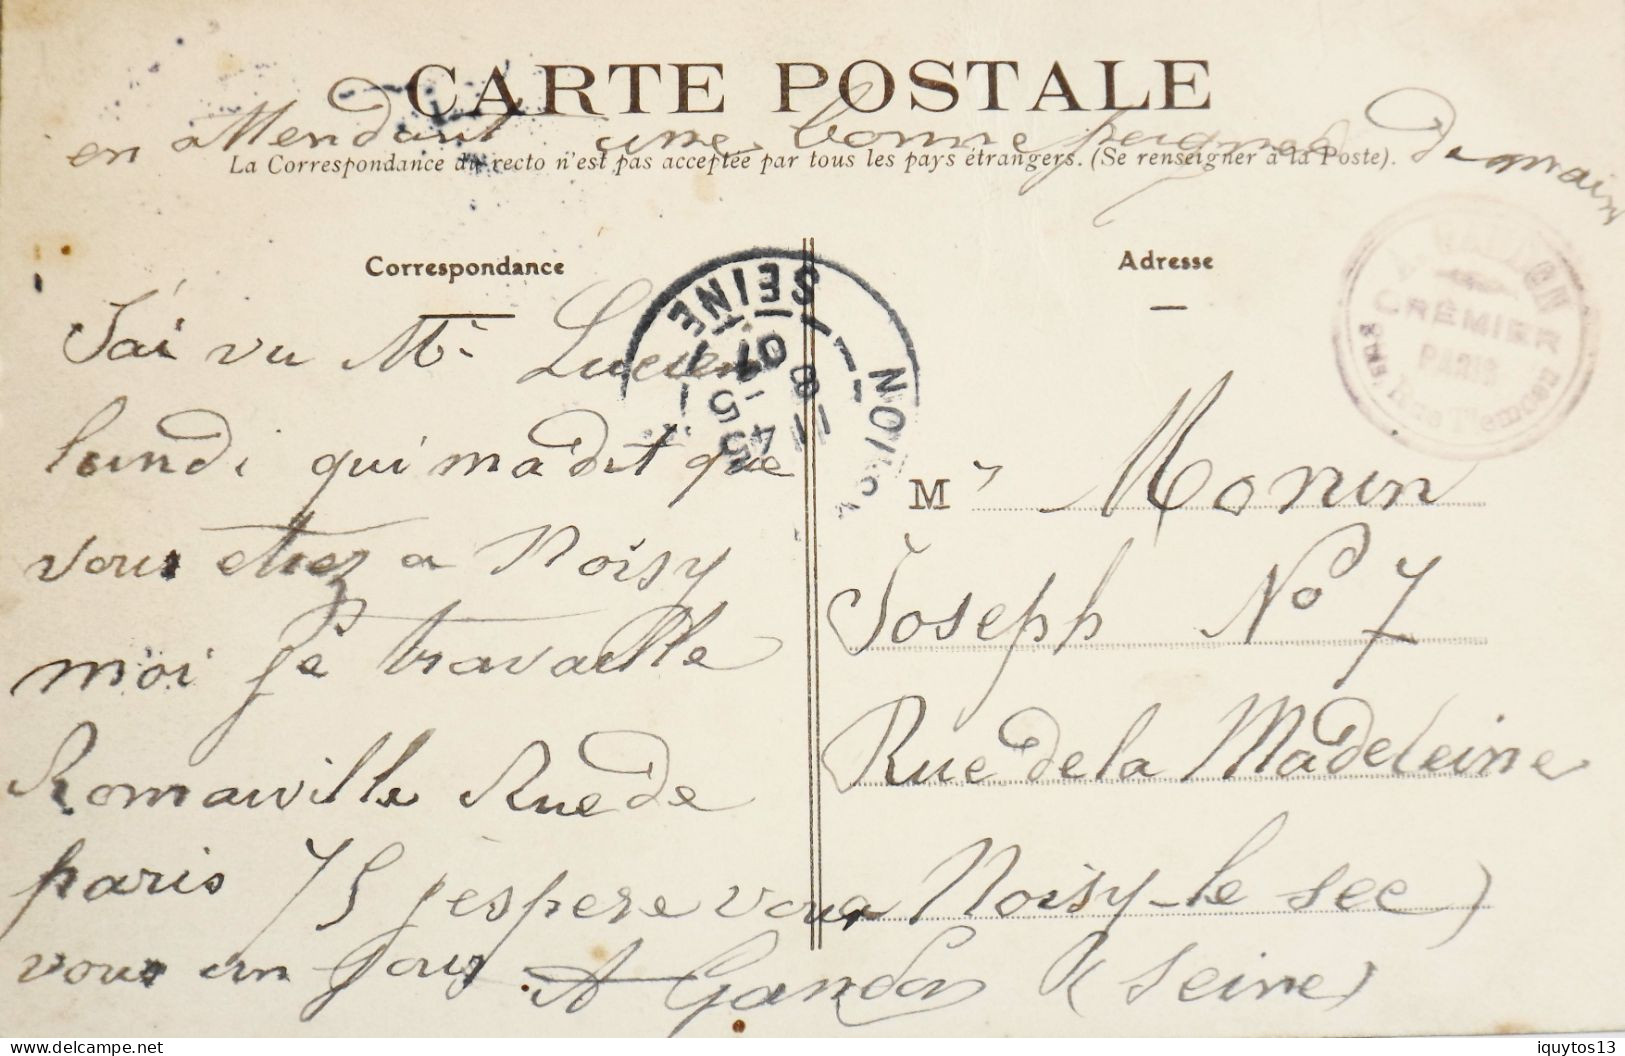 CARTE POSTALE
en attendant une bonne poignée Demain
La Correspondance au recto n'est pas acceptée par tous les pays étrangers. (Se renseigner à la Poste).
Correspondance
J'ai vu Mr Lucien
lundi qui ma dit que
vous etiez a Noisy
moi je travaille
Romainville Rue de
paris 75 j'espere vous
vous un jour
A Gandon
Adresse
Mr Monin
Joseph No 7
Rue de la Madeleine
Noisy-le sec
(Seine)
NOISY
SEINE
CRÉMIER
PARIS
Tlemcen
www.delcampe.net
iquytos13